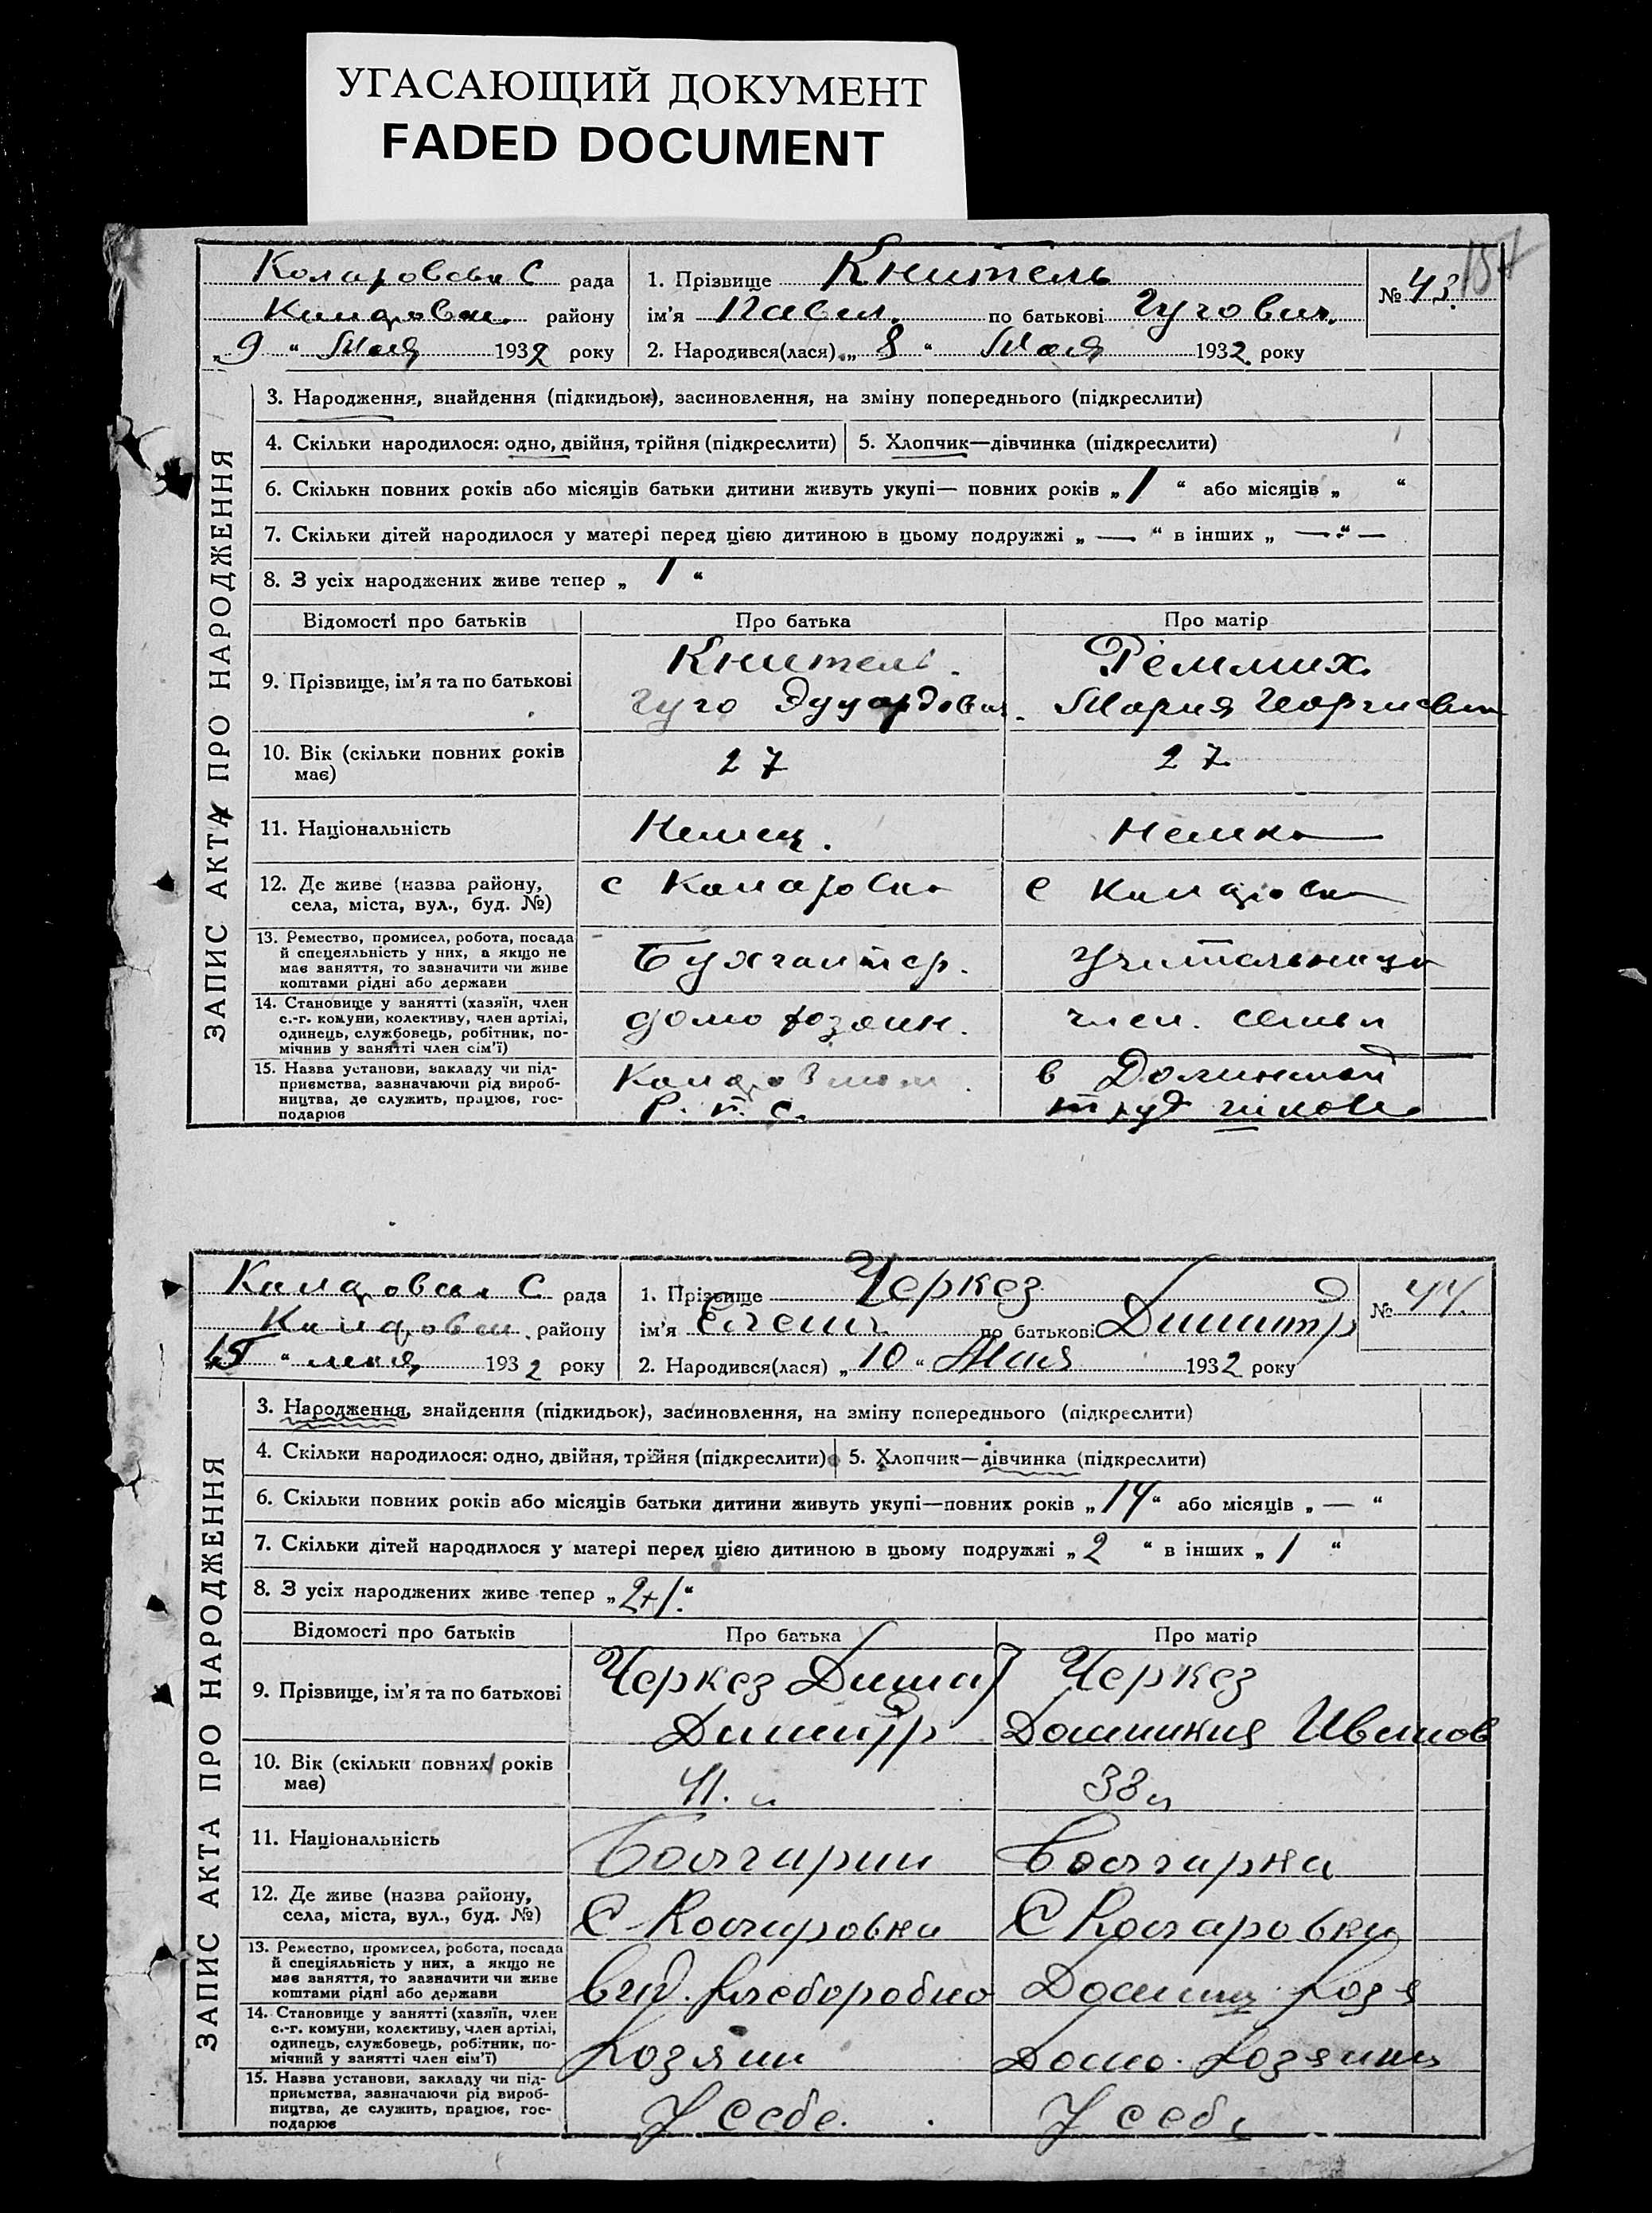 УГАСАЮЩИЙ ДОКУМЕНТ
FADED DOCUMENT
Коларовськ С рада
района району
„9“ Мая 1932 року
1. Прізвище Книтель
ім’я Павел. по батькові Гугович.
2. Народився(лася) „8“ Мая 1932 року
№ 43.
ЗАПИС АКТА ПРО НАРОДЖЕННЯ
3. Народження, знайдення (підкидьок), засиновлення, на зміну попереднього (підкреслити)
4. Скільки народилося: одно, двійня, трійня (підкреслити) 5. Хлопчик—дівчинка (підкреслити)
6. Скільки повних років або місяців батьки дитини живуть укупі— повних років „1“ або місяців „ “
7. Скільки дітей народилося у матері перед цією дитиною в цьому подружжі „—“ в інших „—“—
8. З усіх народжених живе тепер „1“
Відомості про батьків Про батька Про матір
9. Прізвище, ім’я та по батькові
Книтель. Реммих.
Гуго Эдуардович. Мария Георгиевна
10. Вік (скільки повних років має) 27 27
11. Національність Немец. Немка
12. Де живе (назва району, села, міста, вул., буд. №) с Каларовка с Каларовка
13. Ремество, промисел, робота, посада
й спецеяльність у них, а якщо не
має заняття, то зазначити чи живе
коштами рідні або держави
Бухгалтер. Учительница
14. Становище у занятті (хазяїн, член
с.-г. комуни, колективу, член артілі,
одинець, службовець, робітник, по-
мічнив у занятті член сім’ї)
домохозяин. член. семьи
15. Назва установи, закладу чи під-
приємства, зазначаючи рід вироб-
ництва, де служить, працює, гос-
подарює
Р. п. С.
в Долинской
труд школе
С рада
району
„15“ мая 1932 року
1. Прізвище Черкез
ім’я Елена по батькові Димитр
2. Народився(лася) „10“ Мая 1932 року
№ 44.
ЗАПИС АКТА ПРО НАРОДЖЕННЯ
3. Народження, знайдення (підкидьок), засиновлення, на зміну попереднього (підкреслити)
4. Скільки народилося: одно, двійня, трійня (підкреслити) 5. Хлопчик—дівчинка (підкреслити)
6. Скільки повних років або місяців батьки дитини живуть укупі—повних років „14“ або місяців „—“
7. Скільки дітей народилося у матері перед цією дитиною в цьому подружжі „2“ в інших „1“
8. З усіх народжених живе тепер „2+1.“
Відомості про батьків Про батька Про матір
9. Прізвище, ім’я та по батькові
Черкез Димит Черкез
Димитр Домникия Иванов
10. Вік (скільки повних років має) 41. л 38 л
11. Національність Болгарин Болгарка
12. Де живе (назва району, села, міста, вул., буд. №) С Коларовки С Коларовки
13. Ремество, промисел, робота, посада
й спеціяльність у них, а якщо не
має заняття, то зазначити чи живе
коштами рідні або держави
хлеборобно
14. Становище у занятті (хазяїн, член
с.-г. комуни, колективу, член артілі,
одинець, службовець, робітник, по-
мічний у занятті член сім’ї)
Хозяин Домо. Хозяйка
15. Назва установи, закладу чи під-
приємства, зазначаючи рід вироб-
ництва, де служить, працює, гос-
подарює
У себе. У себе